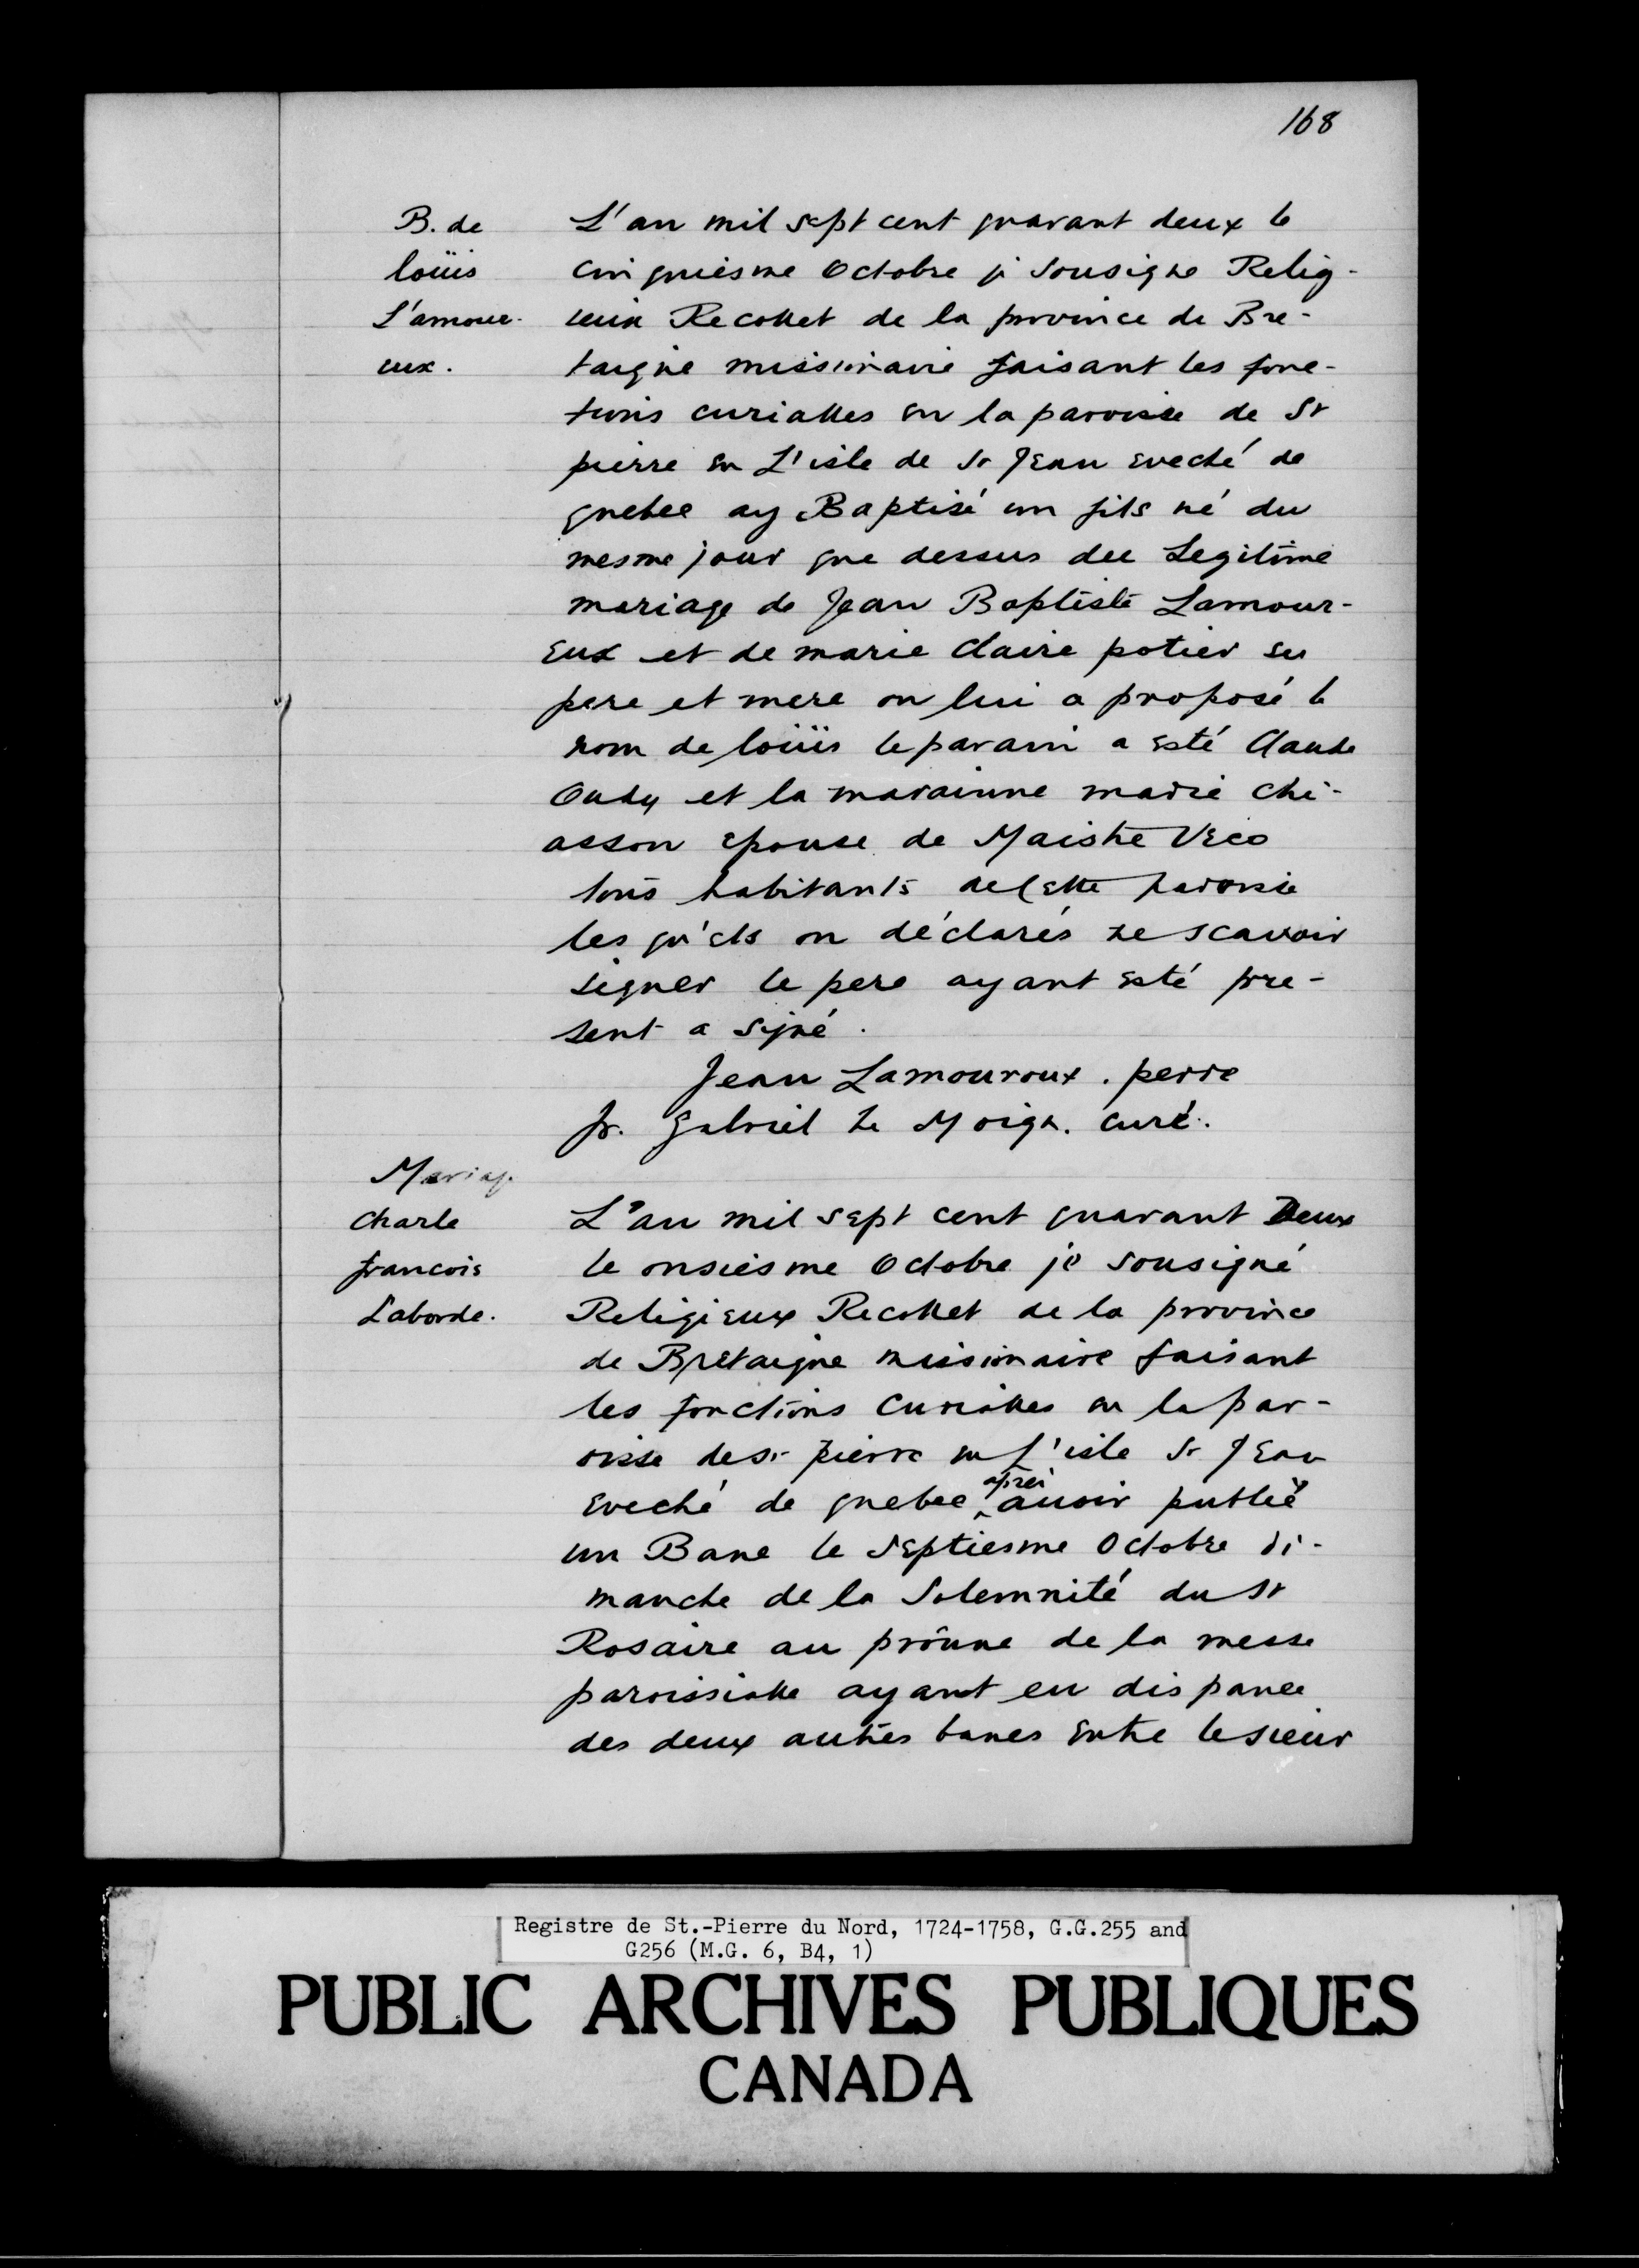 168
B. de
loüis
L'amour-
eux.
L'an mil sept cent quarant deux le
cinquiesme Octobre je Sousigne Relig-
ieux Recollet de la province de Bre-
taigne missionaire faisant les fonc-
tions curialles en la paroisse de St
pierre en L'isle de St JEan eveché de
quebec ay Baptisé un fils né du
mesme jour que dessus du Legitime
mariage de Jean Baptiste Lamour-
Eux et de marie Claire potier ses
pere et mere on lui a proposé le
nom de loüis le parain a esté Claude
Oudy et la marainne marie chi-
asson epouse de Maistre Veco
tous habitants de Cette paroisse
les qu'els on déclarés ne scavoir
signer le pere ayant esté pre-
sent a signé.
Jean Lamouroux. perre
fr. Gabriel Le Moign. curé.
Mariage
Charle
francois
Laborde.
L'an mil sept cent quarant Deux
le onsiesme Octobre je sousigné
Religieux Recollet de la province
de Bretaigne missionaire faisant
les fonctions Curialles en la par-
oisse de St pierre en l'isle St JEan
eveché de quebec après avoir publié
un Banc le SEptiesme Octobre di-
manche de la Solemnité du St
Rosaire au prônne de la messe
paroissialle ayant eu dispance
des deux autres bancs Entre le sieur
Registre de St.-Pierre du Nord, 1724-1758, G.G.255 and
G256 (M.G. 6, B4, 1)
PUBLIC ARCHIVES PUBLIQUES
CANADA